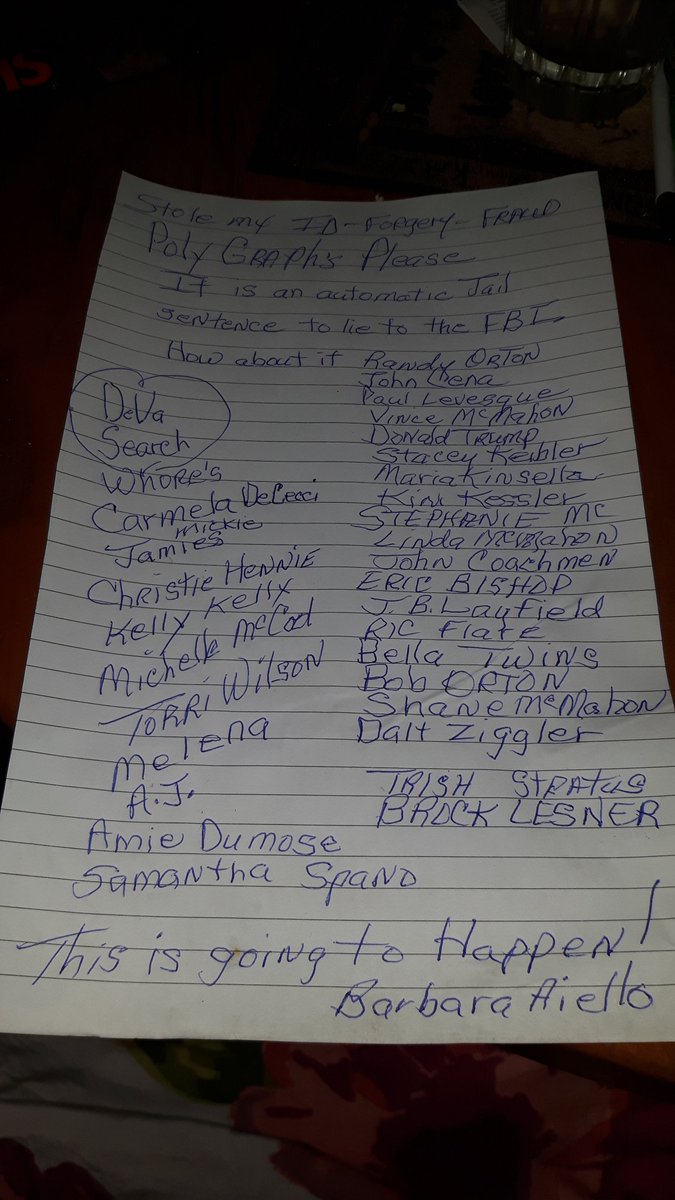 Stole my ID-Forgery-FRAUD
Poly GRAPh's Please
It is an automatic Jail
sentence to lie to the FBI.
How about it Randy ORTON
John Cena
Paul Levesque
DeVa
Vince McMahon
Donald Trump
Search
Stacey Keibler
Whore's
Maria Kinsella
Kim Kessler
Carmela DeCecci
STEPHANIE MC
Mickie
Linda McMahon
Jamies
John Coachmen
Christie HENNIE
ERIC BISHOP
Kelly Kelly
J.B. Layfield
RIC Flare
Michelle McCod
Bella Twins
Bob ORTON
TORRI Wilson
Shane McMahon
Dalt Ziggler
Melena
A.J.
TRISH STRATUS
BROCK LESNER
Amie Dumose
Samantha Spano
This is going to Happen!
Barbara Aiello